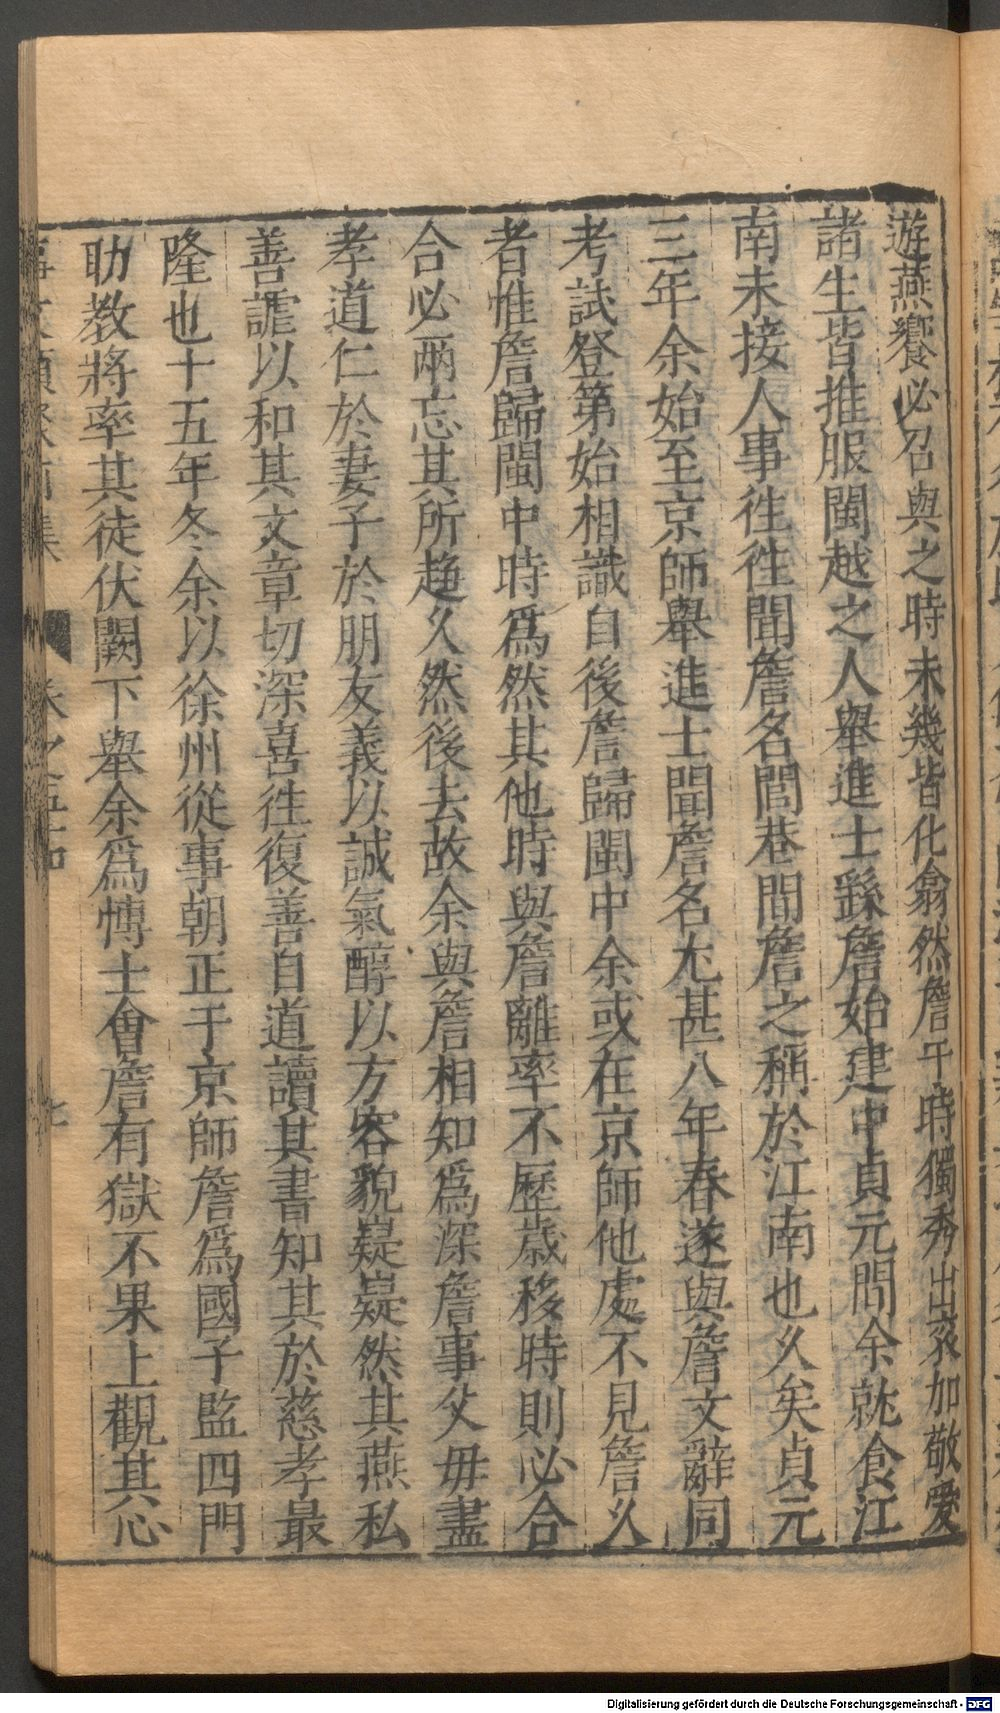 遊燕饗必召與之時未幾皆化翕然詹于時獨秀出衮加敬愛
諸生皆推服閩越之人舉進士繇詹始建中貞元間余就食江
南未接人事徃徃聞詹名閭巷間詹之稱於江南也乆矣貞元
三年余始至京師舉進士聞詹名尢甚八年春遂與詹文辭同
考試登第始相識自後詹歸閩中余或在京師他處不見詹乆
者惟詹歸閩中時爲然其他時與詹離率不歷歲移時則必合
合必兩忘其所趍乆然後去故余與詹相知爲深詹事父毋盡
孝道仁於妻子於朋友義以誠氣醇以方容貌嶷嶷然其燕私
善謔以和其文章切深喜徃復善自道讀其書知其於慈孝最
隆也十五年冬余以徐州從事朝正于京師詹爲國子監四門
助教將率其徒伏闕下舉余爲愽士會詹有獄不果上觀其心
事文類聚前集 卷之五十 七
Digitalisierung gefördert durch die Deutsche Forschungsgemeinschaft - DFG